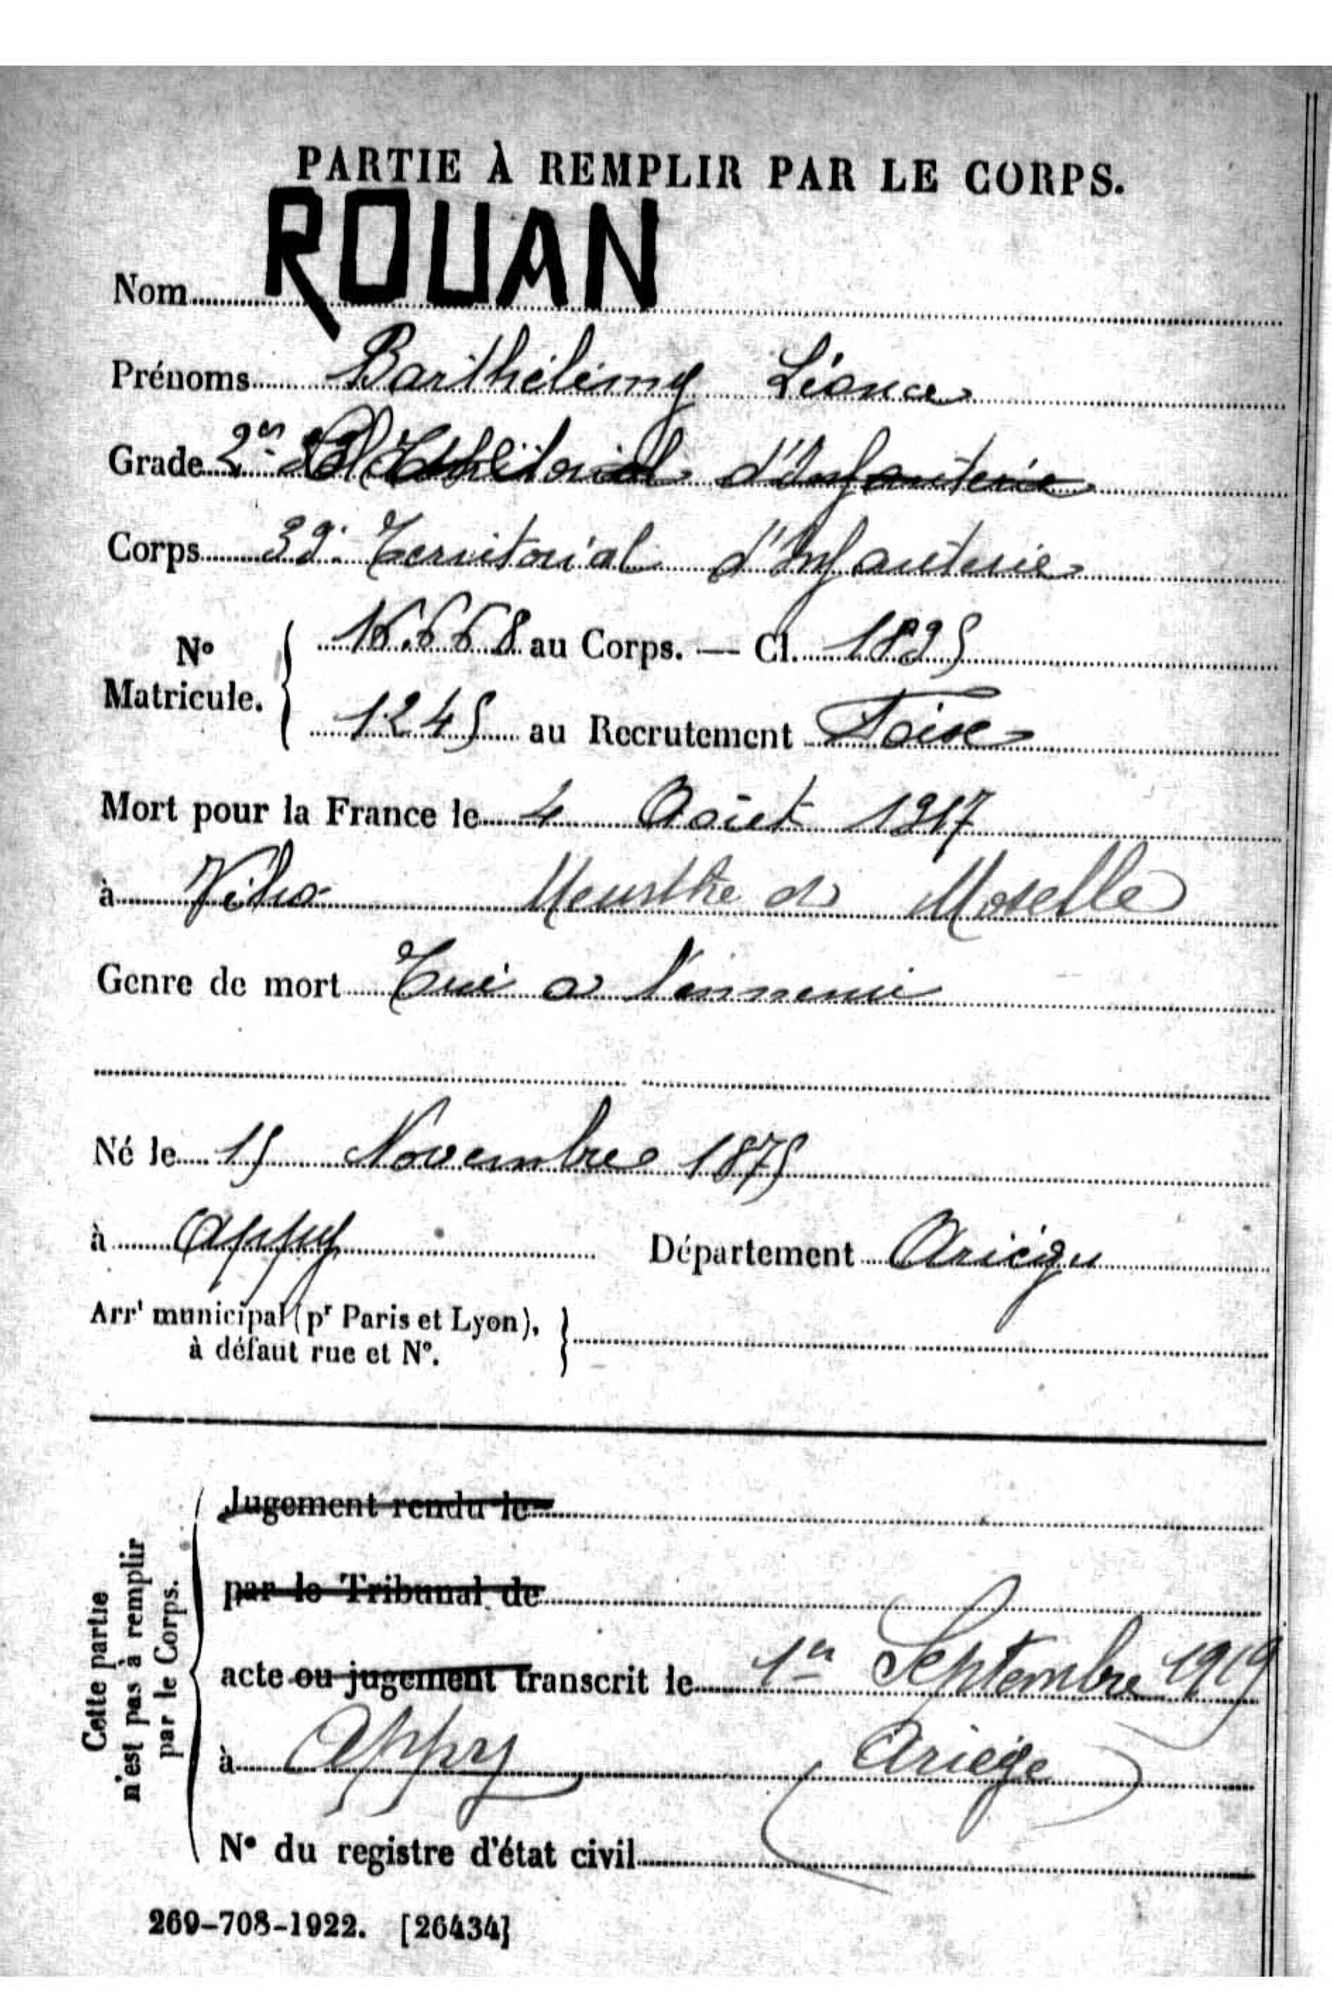 PARTIE À REMPLIR PAR LE CORPS.
Nom ROUAN
Prénoms Barthélémy Léonce
Grade 2e d'Infanterie
Corps 39e Territorial d'Infanterie
No Matricule. 16.668 au Corps. — Cl. 1895
1245 au Recrutement Foix
Mort pour la France le 4 Août 1917
à Viho Meurthe et Moselle
Genre de mort Tué a l'ennemi
Né le 15 Novembre 1875
à Appy Département Ariège
Arrt municipal (pr Paris et Lyon),
à défaut rue et N°.
Cette partie
n'est pas à remplir
par le Corps.
Jugement rendu le
par le Tribunal de
acte ou jugement transcrit le 1er Septembre 1919
à Appy (Ariège)
N° du registre d'état civil
269-708-1922. [26434]